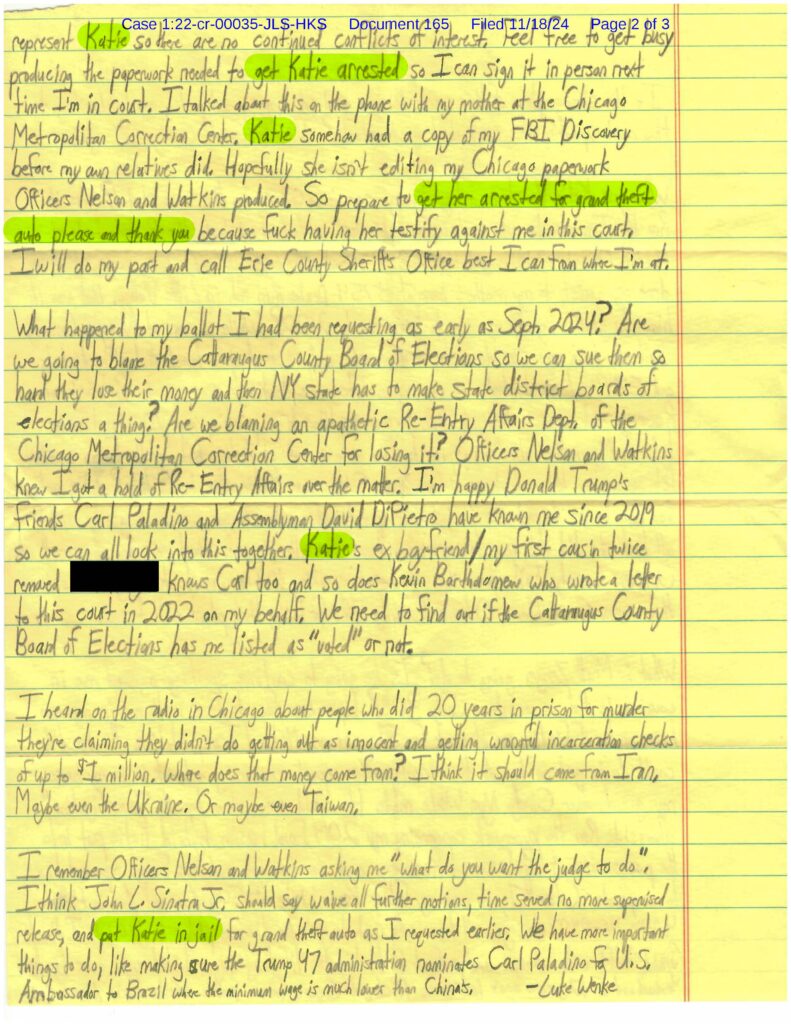 Case 1:22-cr-00035-JLS-HKS Document 165 Filed 11/18/24 Page 2 of 3
represent Katie so there are no continued conflicts of interest. Feel free to get busy
producing the paperwork needed to get Katie arrested so I can sign it in person next
time I'm in court. I talked about this on the phone with my mother at the Chicago
Metropolitan Correction Center. Katie somehow had a copy of my FBI Discovery
before my own relatives did. Hopefully she isn't editing my Chicago paperwork
Officers Nelson and Watkins produced. So prepare to get her arrested for grand theft
auto please and thank you because fuck having her testify against me in this court.
I will do my part and call Erie County Sheriff's Office best I can from where I'm at.
What happened to my ballot I had been requesting as early as Sept. 2024? Are
we going to blame the Cattaraugus County Board of Elections so we can sue them so
hard they lose their money and then NY state has to make state district boards of
elections a thing? Are we blaming an apathetic Re-Entry Affairs Dept. of the
Chicago Metropolitan Correction Center for losing it? Officers Nelson and Watkins
knew I got a hold of Re-Entry Affairs over the matter. I'm happy Donald Trump's
friends Carl Paladino and Assemblyman David DiPietro have known me since 2019
so we can all look into this together. Katie's ex boyfriend/my first cousin twice
removed knows Carl too and so does Kevin Bartholomew who wrote a letter
to this court in 2022 on my behalf. We need to find out if the Cattaraugus County
Board of Elections has me listed as "voted" or not.
I heard on the radio in Chicago about people who did 20 years in prison for murder
they're claiming they didn't do getting out as inocent and getting wrongful incarceration checks
of up to $1 million. Where does that money come from? I think it should come from Iran.
Maybe even the Ukraine. Or maybe even Taiwan.
I remember Officers Nelson and Watkins asking me "what do you want the judge to do".
I think John L. Sinatra Jr. should say waive all further motions, time served no more supervised
release, and put Katie in jail for grand theft auto as I requested earlier. We have more important
things to do, like making sure the Trump 47 administration nominates Carl Paladino for U.S.
Ambassador to Brazil where the minimum wage is much lower than China's. -Luke Wenke